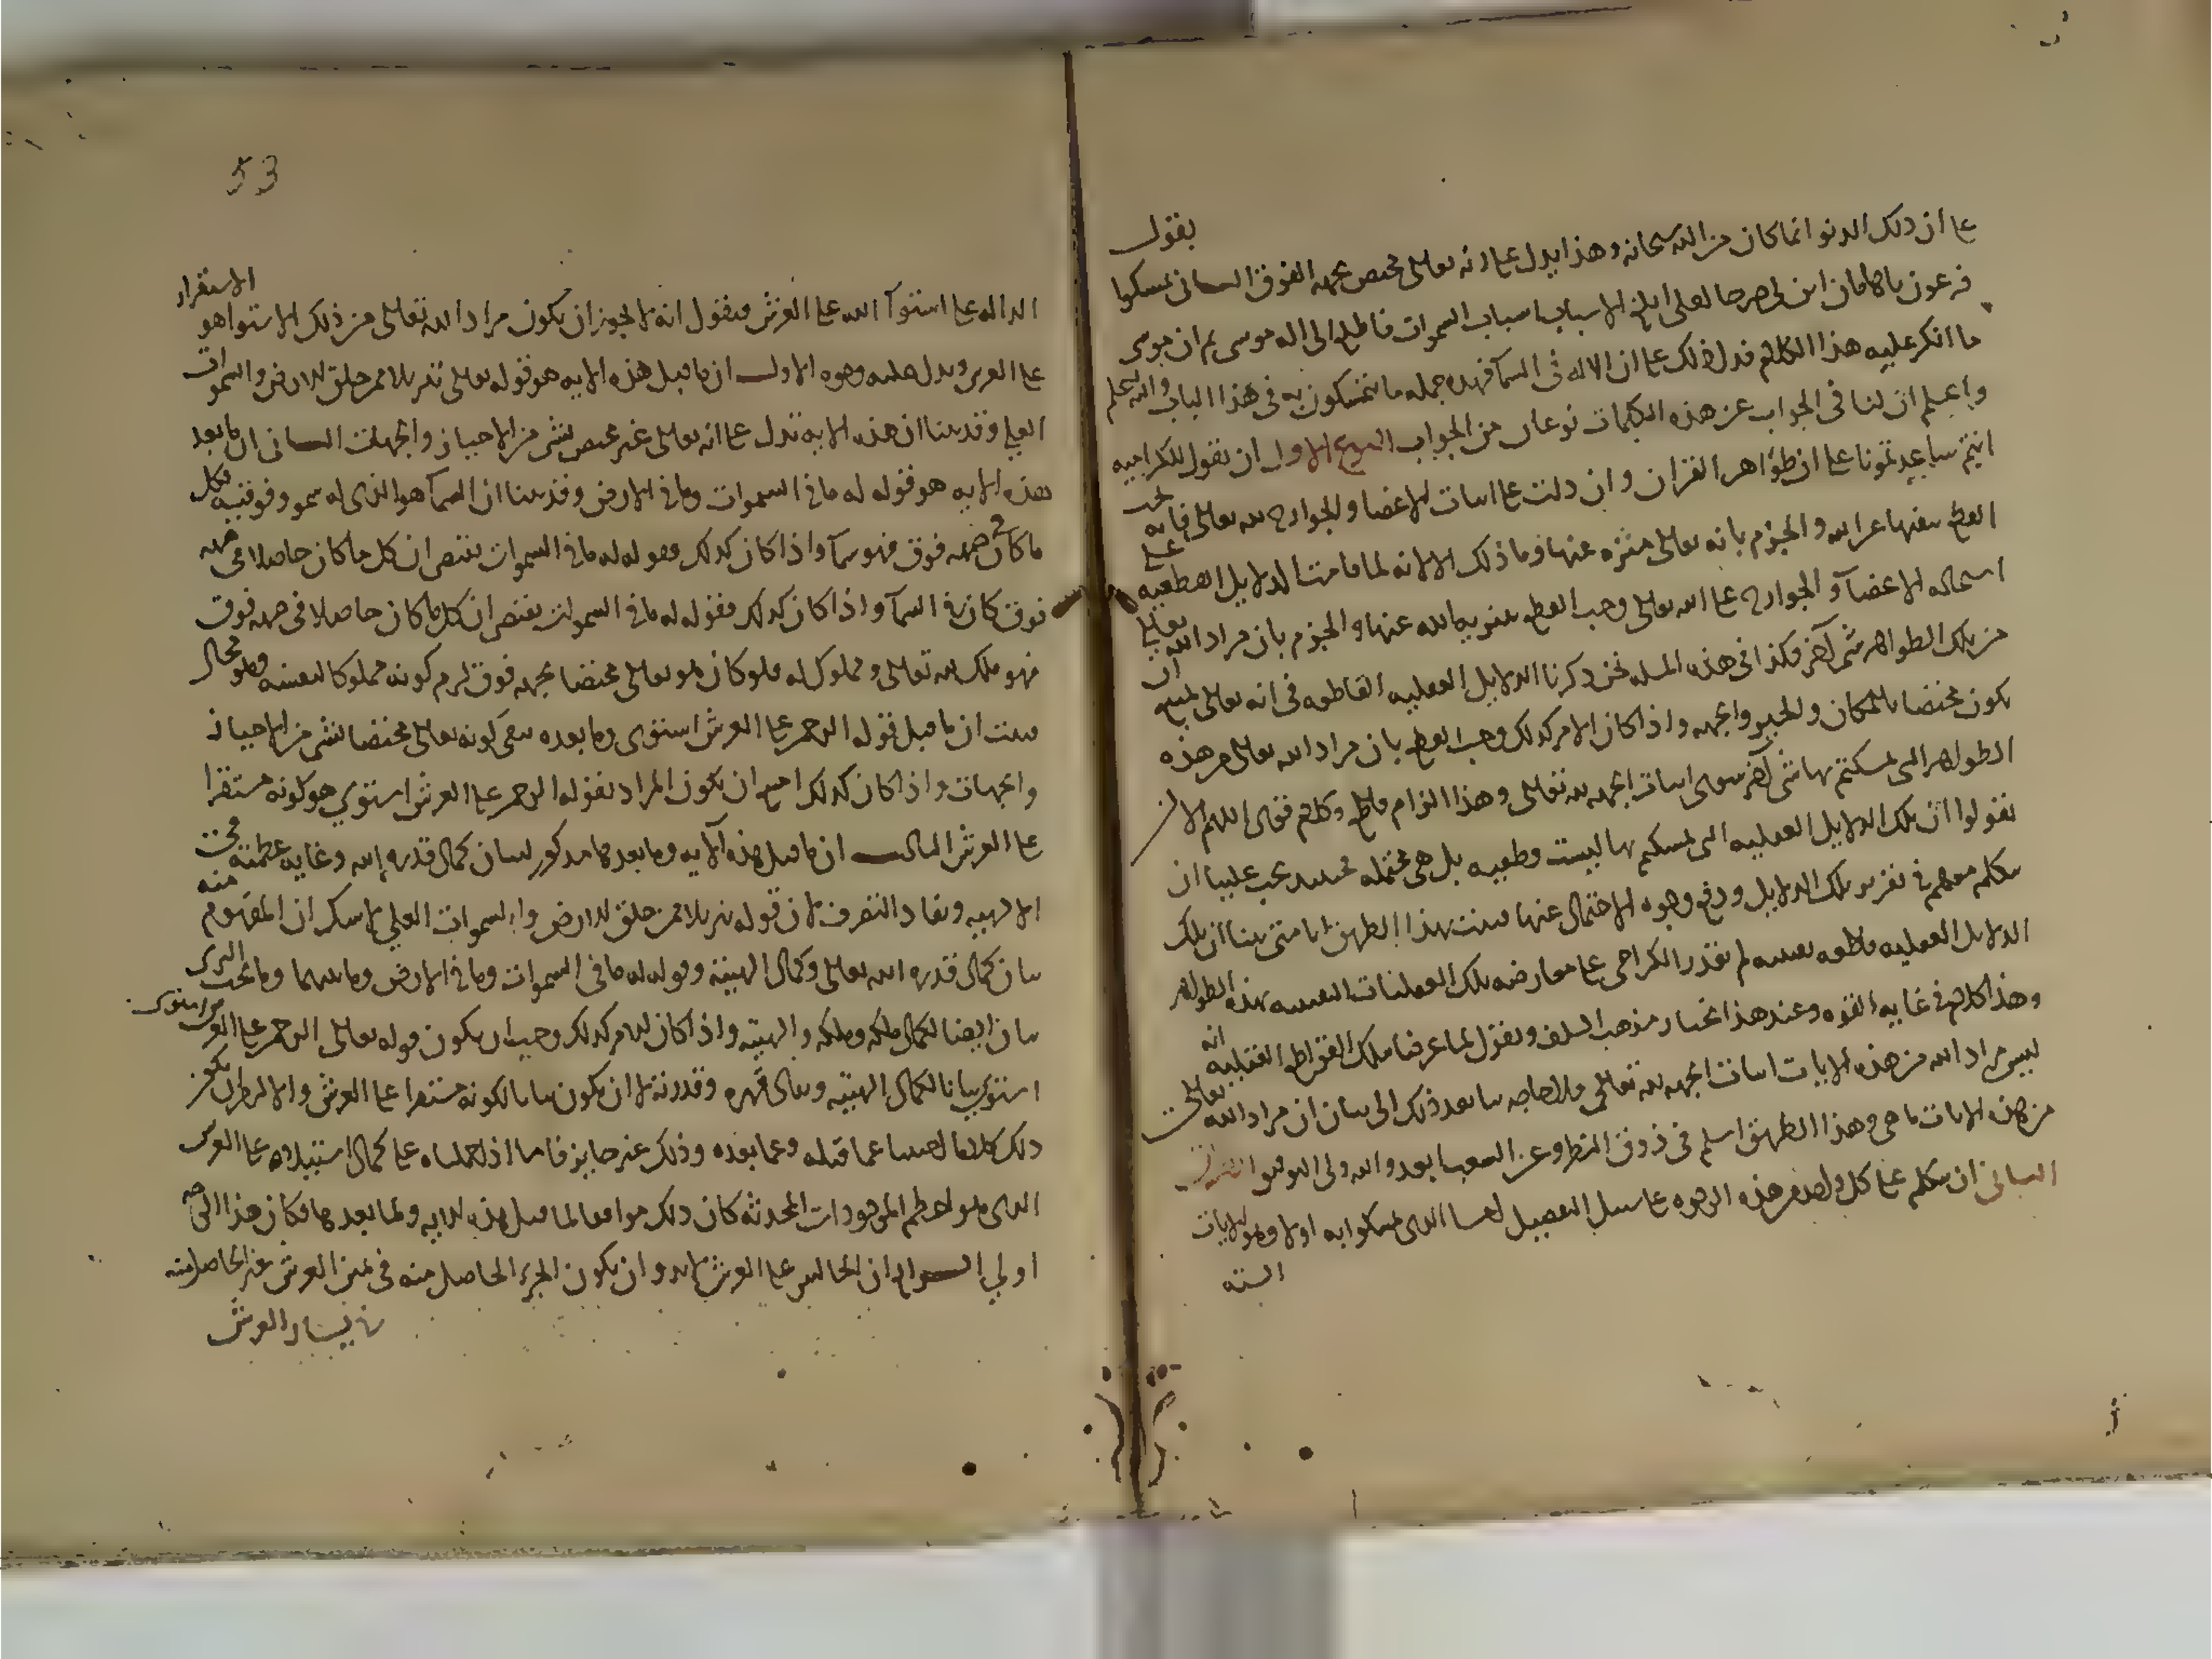 بقول
على ان ذلك الدنو انما كان من الله سبحانه وهذا يدل على انه تعالى مختص بجهه الفوق الثانى تمسكوا
فرعون ياهامان ابن لى صرحا لعلى ابلغ الاسباب اسباب السموات فاطلع الى اله موسى ثم ان موسى
ما انكر عليه هذا الكلام فدل ذلك على ان الاله فى السما فهذه جمله ما يتمسكون به فى هذا الباب والله اعلم
واعلم ان لنا فى الجواب عن هذه الكلمات نوعان من الجواب النوع الاول ان نقول للكراميه
انتم ساعدتمونا على ان ظواهر القران وان دلت على اثبات الاعضا والجوارح لله تعالى فانه يجب
القطع بنفيها عن الله والجزم بانه تعالى منزه عنها وما ذلك الا لانه لما قامت الدلايل القطعيه على
استحاله الاعضآ والجوارح على الله تعالى وجب القطع بتنزيه الله عنها والجزم بان مراد الله تعالى
من تلك الظواهر شى آخر فكذا فى هذه المسله نحن ذكرنا الدلايل العقليه القاطعه فى انه تعالى يمتنع ان
يكون مختصا بالمكان والحيز والجهه واذا كان الامر كذلك وجب القطع بان مراد الله تعالى من هذه
الظواهر التى تمسكتم بها شى آخر سوى اثبات الجهه لله تعالى وهذا الزام قاطع وكلام قوى اللهم الا ان
تقولوا ان تلك الدلايل العقليه التى تمسكتم بها ليست قطعيه بل هى محتمله فحينئذ يجب علينا ان
نتكلم معهم فى تقرير تلك الدلايل ودفع وجوه الاحتمال عنها فثبت بهذا الطريق انا متى بينا ان تلك
الدلايل العقليه قاطعه يقينيه لم يقدر الكرامى على معارضه تلك العقليات اليقينيه بهذه الظواهر
وهذا كلام فى غايه القوه وعند هذا نختار مذهب السلف ونقول لما عرفنا بتلك القواطع العقليه انه
ليس مراد الله من هذه الايات اثبات الجهه لله تعالى فلا حاجه بنا بعد ذلك الى بيان ان مراد الله تعالى
من هذه الايات ما هى وهذا الطريق اسلم فى ذوق النظر وعن الشغب ابعد والله ولى التوفيق
الثانى ان نتكلم على كل واحد من هذه الوجوه على سبيل التفصيل اما الذى تمسكوا به اولا وهو الايات
السته
53
الداله على استوآ الله على العرش فنقول انه لا يجوز ان يكون مراد الله تعالى من ذلك الاستوا هو الاستقرار
على العرش ويدل عليه وجوه الاول ان ما قبل هذه الايه هو قوله تعالى تنزيلا ممن خلق الارض والسموات
العلى وقد بينا ان هذه الايه تدل على انه تعالى غير مختص بشى من الاحياز والجهات الثانى ان ما بعد
هذه الايه هو قوله له ما فى السموات وما فى الارض وقد بينا ان السمآ هو الذى له سمو وفوقيه فكل
ما كان فى جهه فوق فهو سمآ واذا كان كذلك فقوله له ما فى السموات يقتضى ان كل ما كان حاصلا فى جهه
فوق كان فى السمآ واذا كان كذلك فقوله له ما فى السموات يقتضى ان كل ما كان حاصلا فى جهه فوق
فهو ملك لله تعالى ومملوك له فلو كان هو تعالى مختصا بجهه فوق لزم كونه مملوكا لنفسه وهو محال
فثبت ان ما قبل قوله الرحمن على العرش استوى وما بعده ينفى كونه تعالى مختصا بشى من الاحياز
والجهات واذا كان كذلك امتنع ان يكون المراد بقوله الرحمن على العرش استوى هو كونه مستقرا
على العرش الثالث ان ما قبل هذه الآيه وما بعدها مذكور لبيان كمال قدره الله وغايه عظمته فى
الالهيه ونفاد التصرف لان قوله تنزيلا ممن خلق الارض والسموات العلى لا شك ان المفهوم منه
بيان كمال قدره الله تعالى وكمال الهيته وقوله له ما فى السموات وما فى الارض وما بينهما وما تحت الثرى
بيان ايضا لكمال ملكه وملكه والهيته واذا كان الامر كذلك وجب ان يكون قوله تعالى الرحمن على العرش استوى
استوى بيانا لكمال الهيته وتعالى قهره وقدرته لا ان يكون بيانا لكونه مستقرا على العرش والا لزم ان يكون
ذلك كلاما اجنبيا عما قبله وعما بعده وذلك غير جايز فاما اذا حملناه على كمال استيلاه على العرش
الذى هو اعظم الموجودات المحدثه كان ذلك موافقا لما قبل هذه الايه ولما بعدها فكان هذا الوجه
اولى الرابع ان الجالس على العرش لا بد وان يكون الجزء الحاصل منه فى يمين العرش غير الحاصل منه
فى يسار العرش